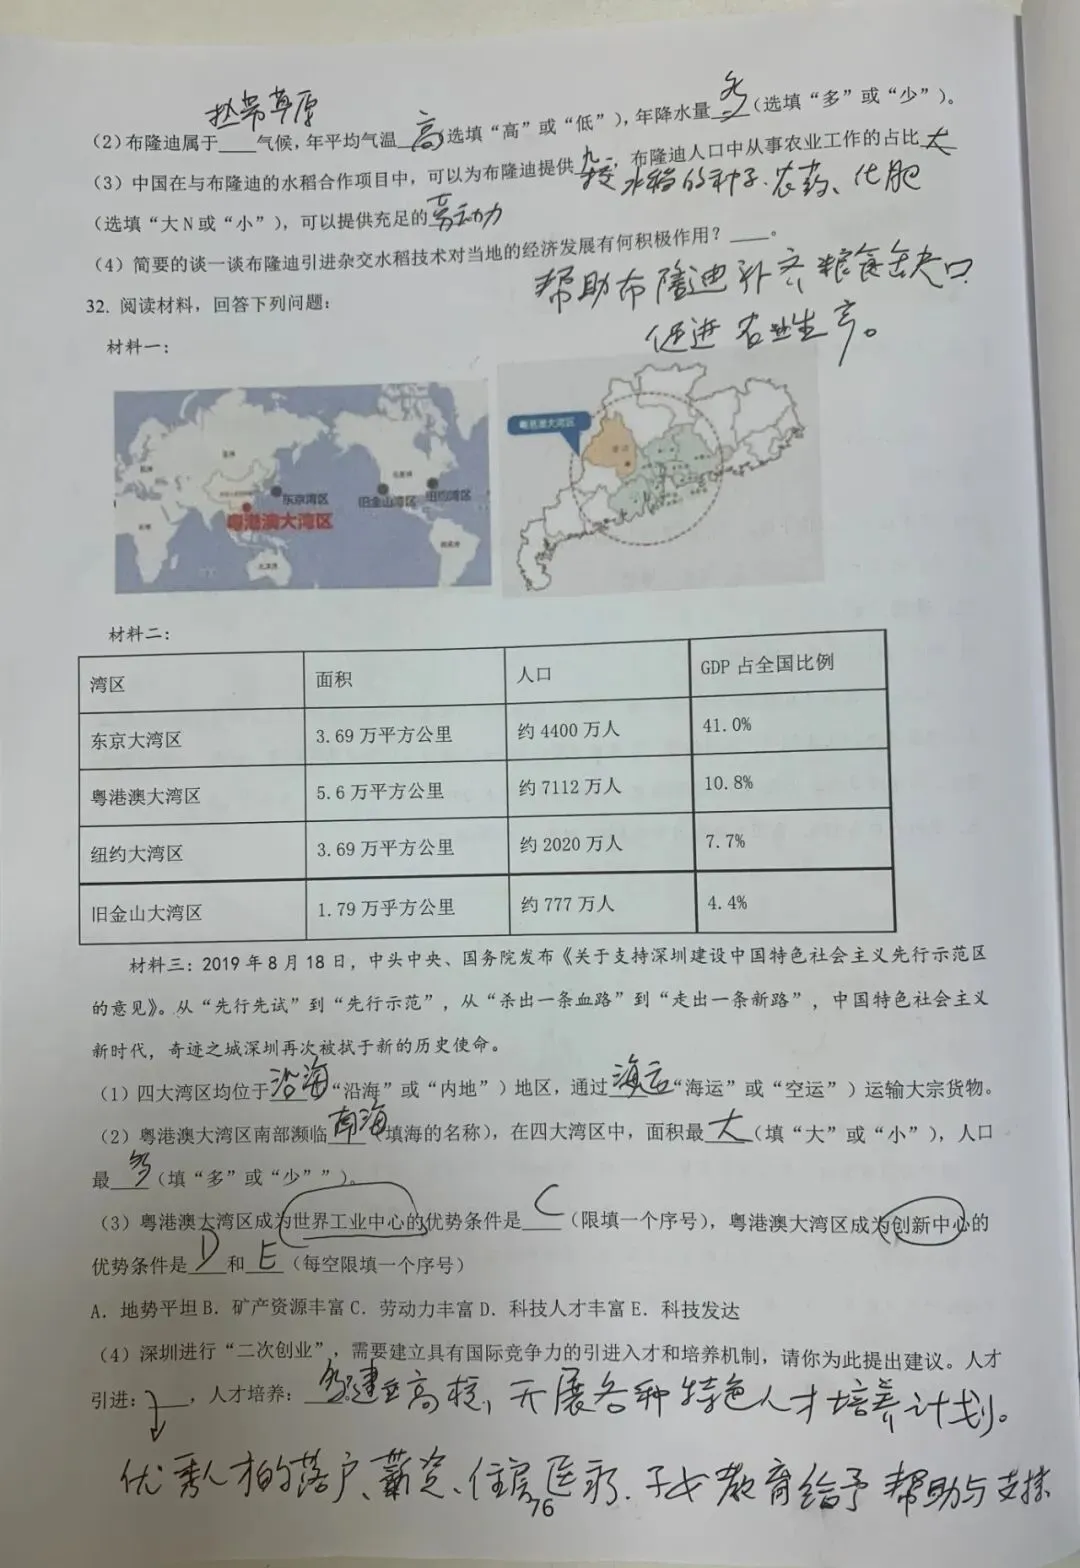 热带草原
(2)布隆迪属于____气候,年平均气温 高 选填“高”或“低”),年降水量 多 (选填“多”或“少”)。
(3)中国在与布隆迪的水稻合作项目中,可以为布隆迪提供____,布隆迪人口中从事农业工作的占比 大
水稻的种子、农药、化肥
(选填“大N或“小”),可以提供充足的 劳动力
(4)简要的谈一谈布隆迪引进杂交水稻技术对当地的经济发展有何积极作用?____。
帮助布隆迪补齐粮食缺口
促进农业生产。
32. 阅读材料,回答下列问题:
材料一:
粤港澳大湾区
东京湾区
旧金山湾区
纽约湾区
粤港澳大湾区
材料二:
湾区 面积 人口 GDP 占全国比例
东京大湾区 3.69 万平方公里 约 4400 万人 41.0%
粤港澳大湾区 5.6 万平方公里 约 7112 万人 10.8%
纽约大湾区 3.69 万平方公里 约 2020 万人 7.7%
旧金山大湾区 1.79 万乎方公里 约 777 万人 4.4%
材料三:2019 年 8 月 18 日,中头中央、国务院发布《关于支持深圳建设中国特色社会主义先行示范区
的意见》。从“先行先试”到“先行示范”,从“杀出一条血路”到“走出一条新路”,中国特色社会主义
新时代,奇迹之城深圳再次被拭于新的历史使命。
(1)四大湾区均位于 沿海 “沿海”或“内地”)地区,通过 海运 “海运”或“空运”)运输大宗货物。
(2)粤港澳大湾区南部濒临 南海 填海的名称),在四大湾区中,面积最 大 (填“大”或“小”),人口
最 多 (填“多”或“少””)。
(3)粤港澳大湾区成为世界工业中心的优势条件是 C (限填一个序号),粤港澳大湾区成为创新中心的
优势条件是 D 和 E (每空限填一个序号)
A. 地势平坦 B. 矿产资源丰富 C. 劳动力丰富 D. 科技人才丰富 E. 科技发达
(4)深圳进行“二次创业”,需要建立具有国际竞争力的引进入才和培养机制,请你为此提出建议。人才
引进:____,人才培养: 多建立高校,开展各种特色人才培养计划。
优秀人才的落户、薪资、住房医疗、子女教育给予帮助与支持
76